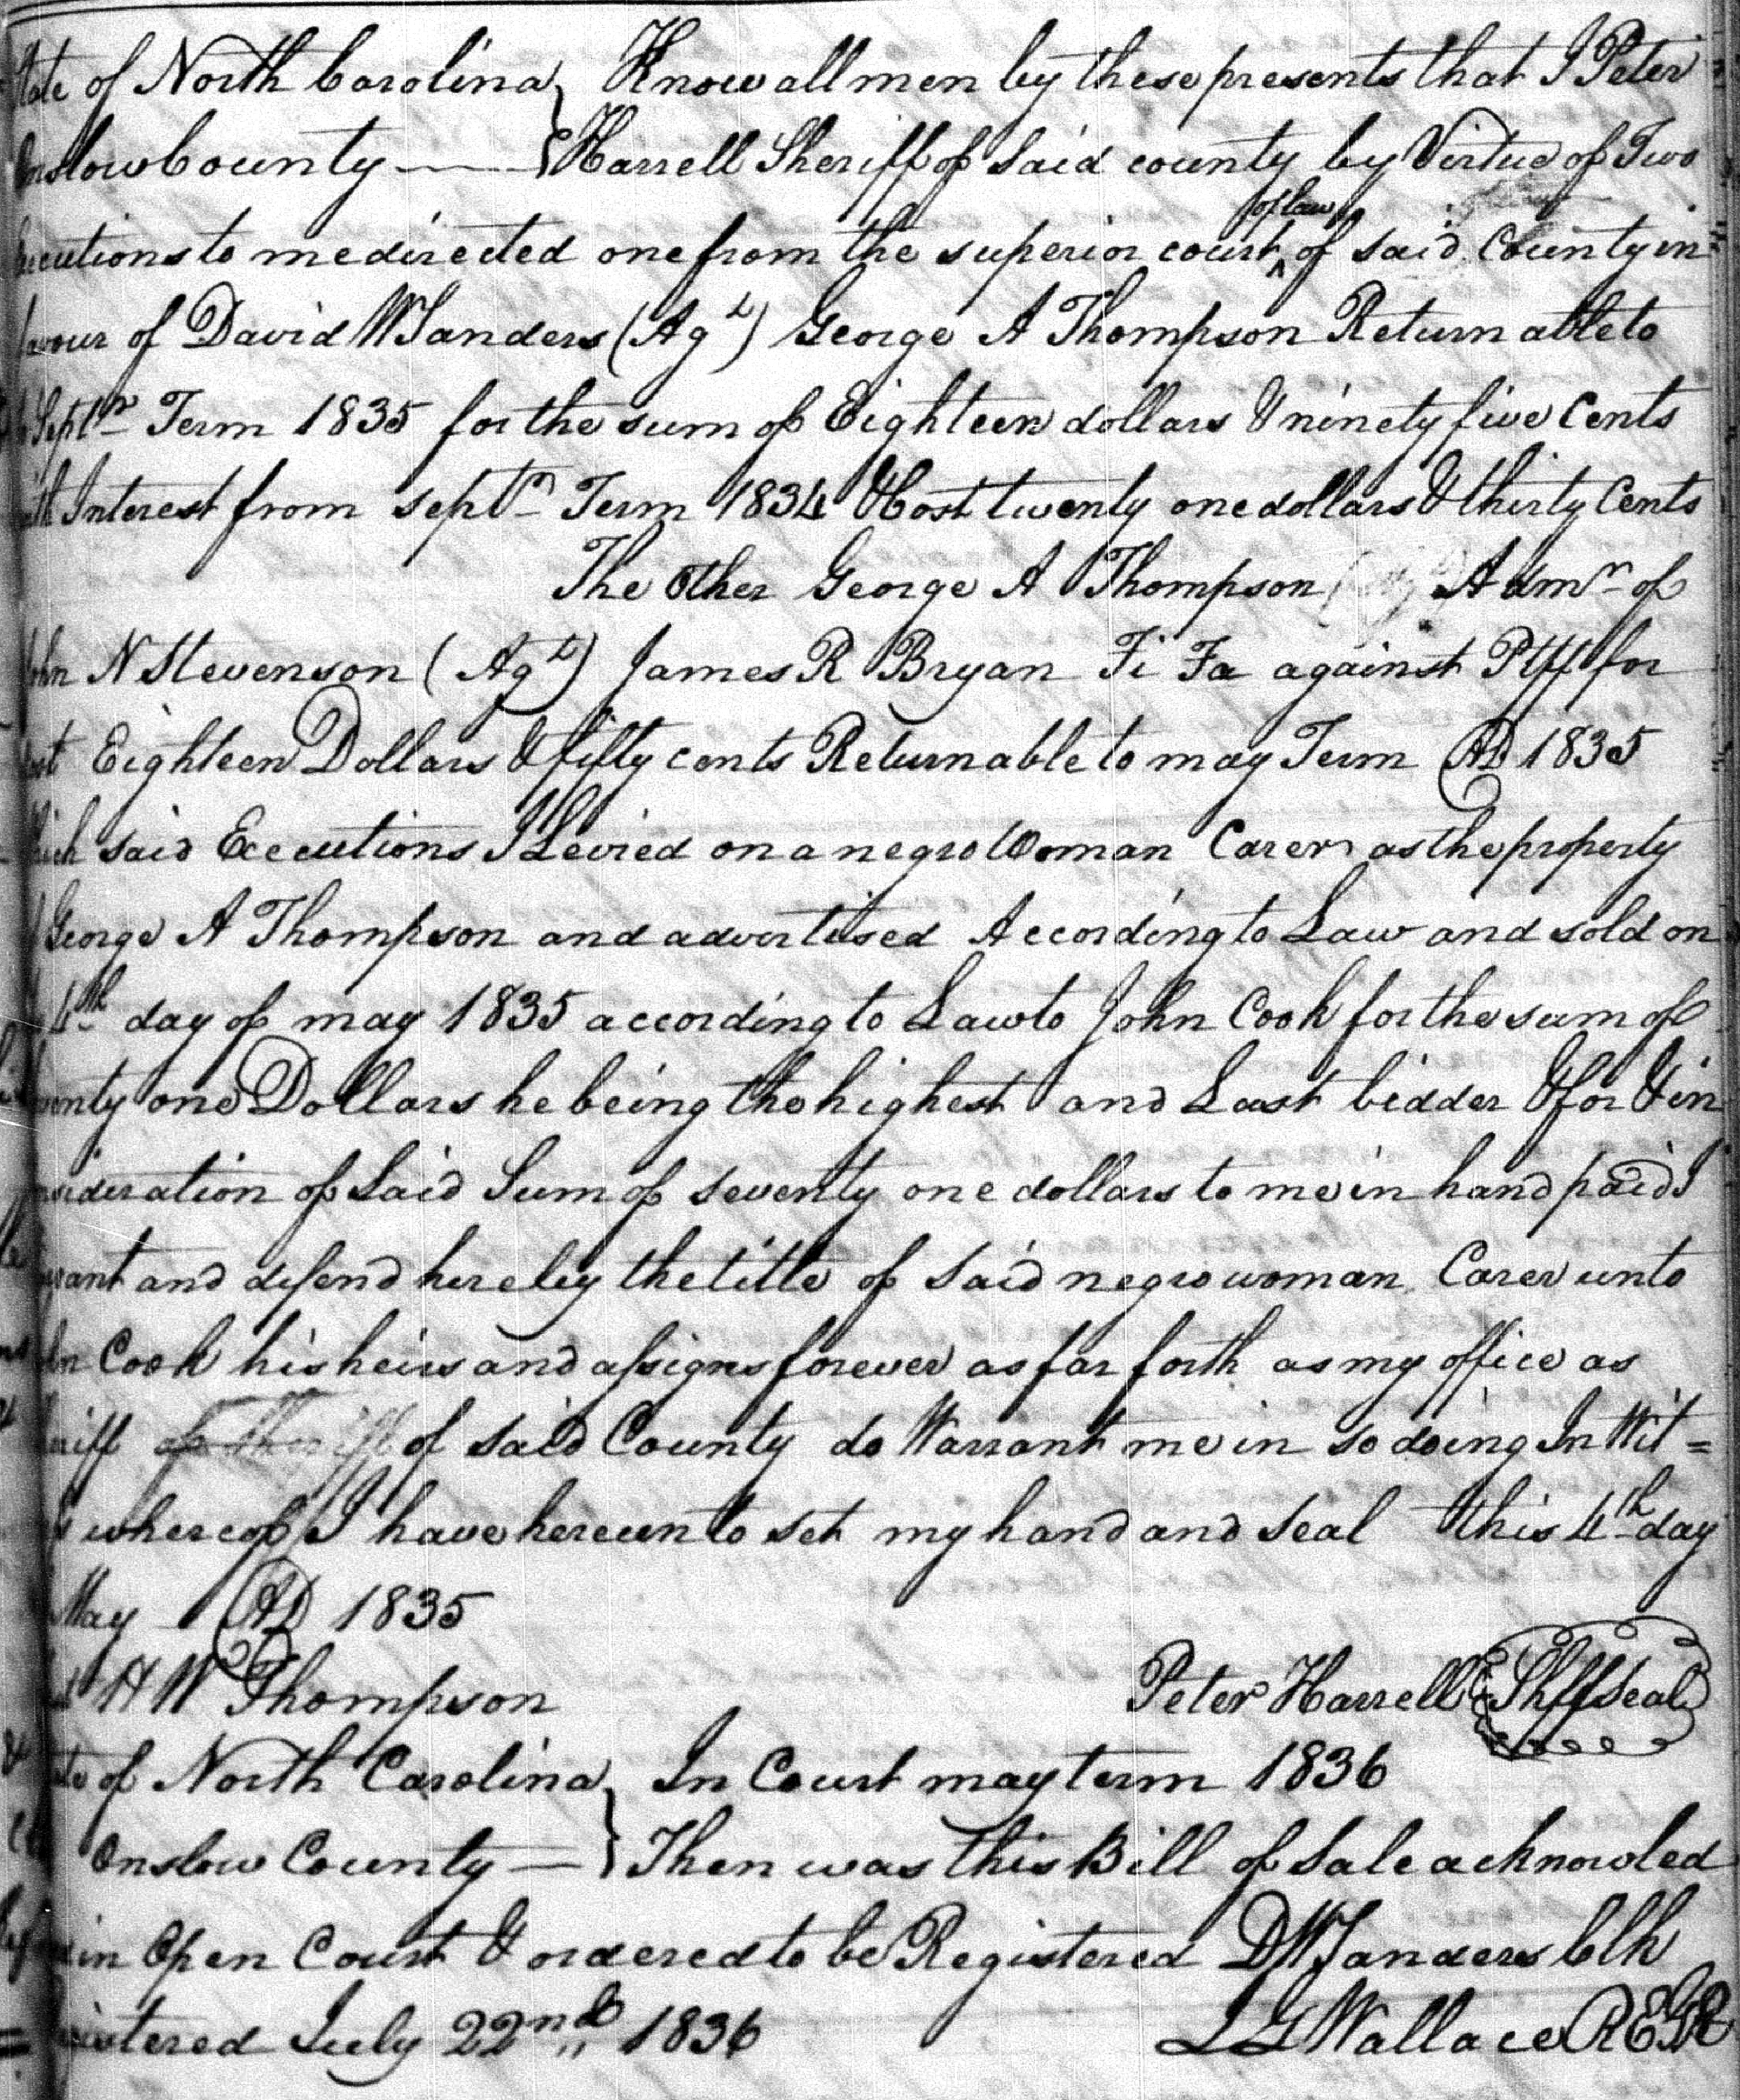 State of North Carolina } Know all men by these presents that I Peter
Onslow County — } Harrell Sheriff of Said county by Virtue of Two
Executions to me directed one from the superior court ^of law of said County in
favour of David W Sanders (Agt) George A Thompson Returnable to
Septr Term 1835 for the sum of Eighteen dollars & ninety five Cents
with Interest from septr Term 1834 & Cost twenty one dollars & thirty Cents
The Other George A Thompson Admr of
John N Stevenson (Agt) James R Bryan Fi Fa against Ptff for
Cost Eighteen Dollars & fifty cents Returnable to may Term AD 1835
Which said Executions I Levied on a negro Woman Caren as the property
of George A Thompson and advertised According to Law and sold on
4th day of may 1835 according to Law to John Cook for the sum of
Seventy one Dollars he being the highest and Last bidder & for & in
consideration of Said Sum of seventy one dollars to me in hand paid I
warant and defend hereby the title of Said negro woman Caren unto
John Cook his heirs and assigns forever as far forth as my office as
Sheriff of Sheriff of said County do Warrant me in so doing In Wit=
whereof I have hereunto set my hand and seal this 4th day
May AD 1835
H W Thompson Peter Harrell Shff Seal
State of North Carolina } In Court may term 1836
Onslow County — } Then was this Bill of Sale acknowled
in Open Court & ordered to be Registered D W Sanders Clk
Registered July 22nd 1836 L G Wallace REGR